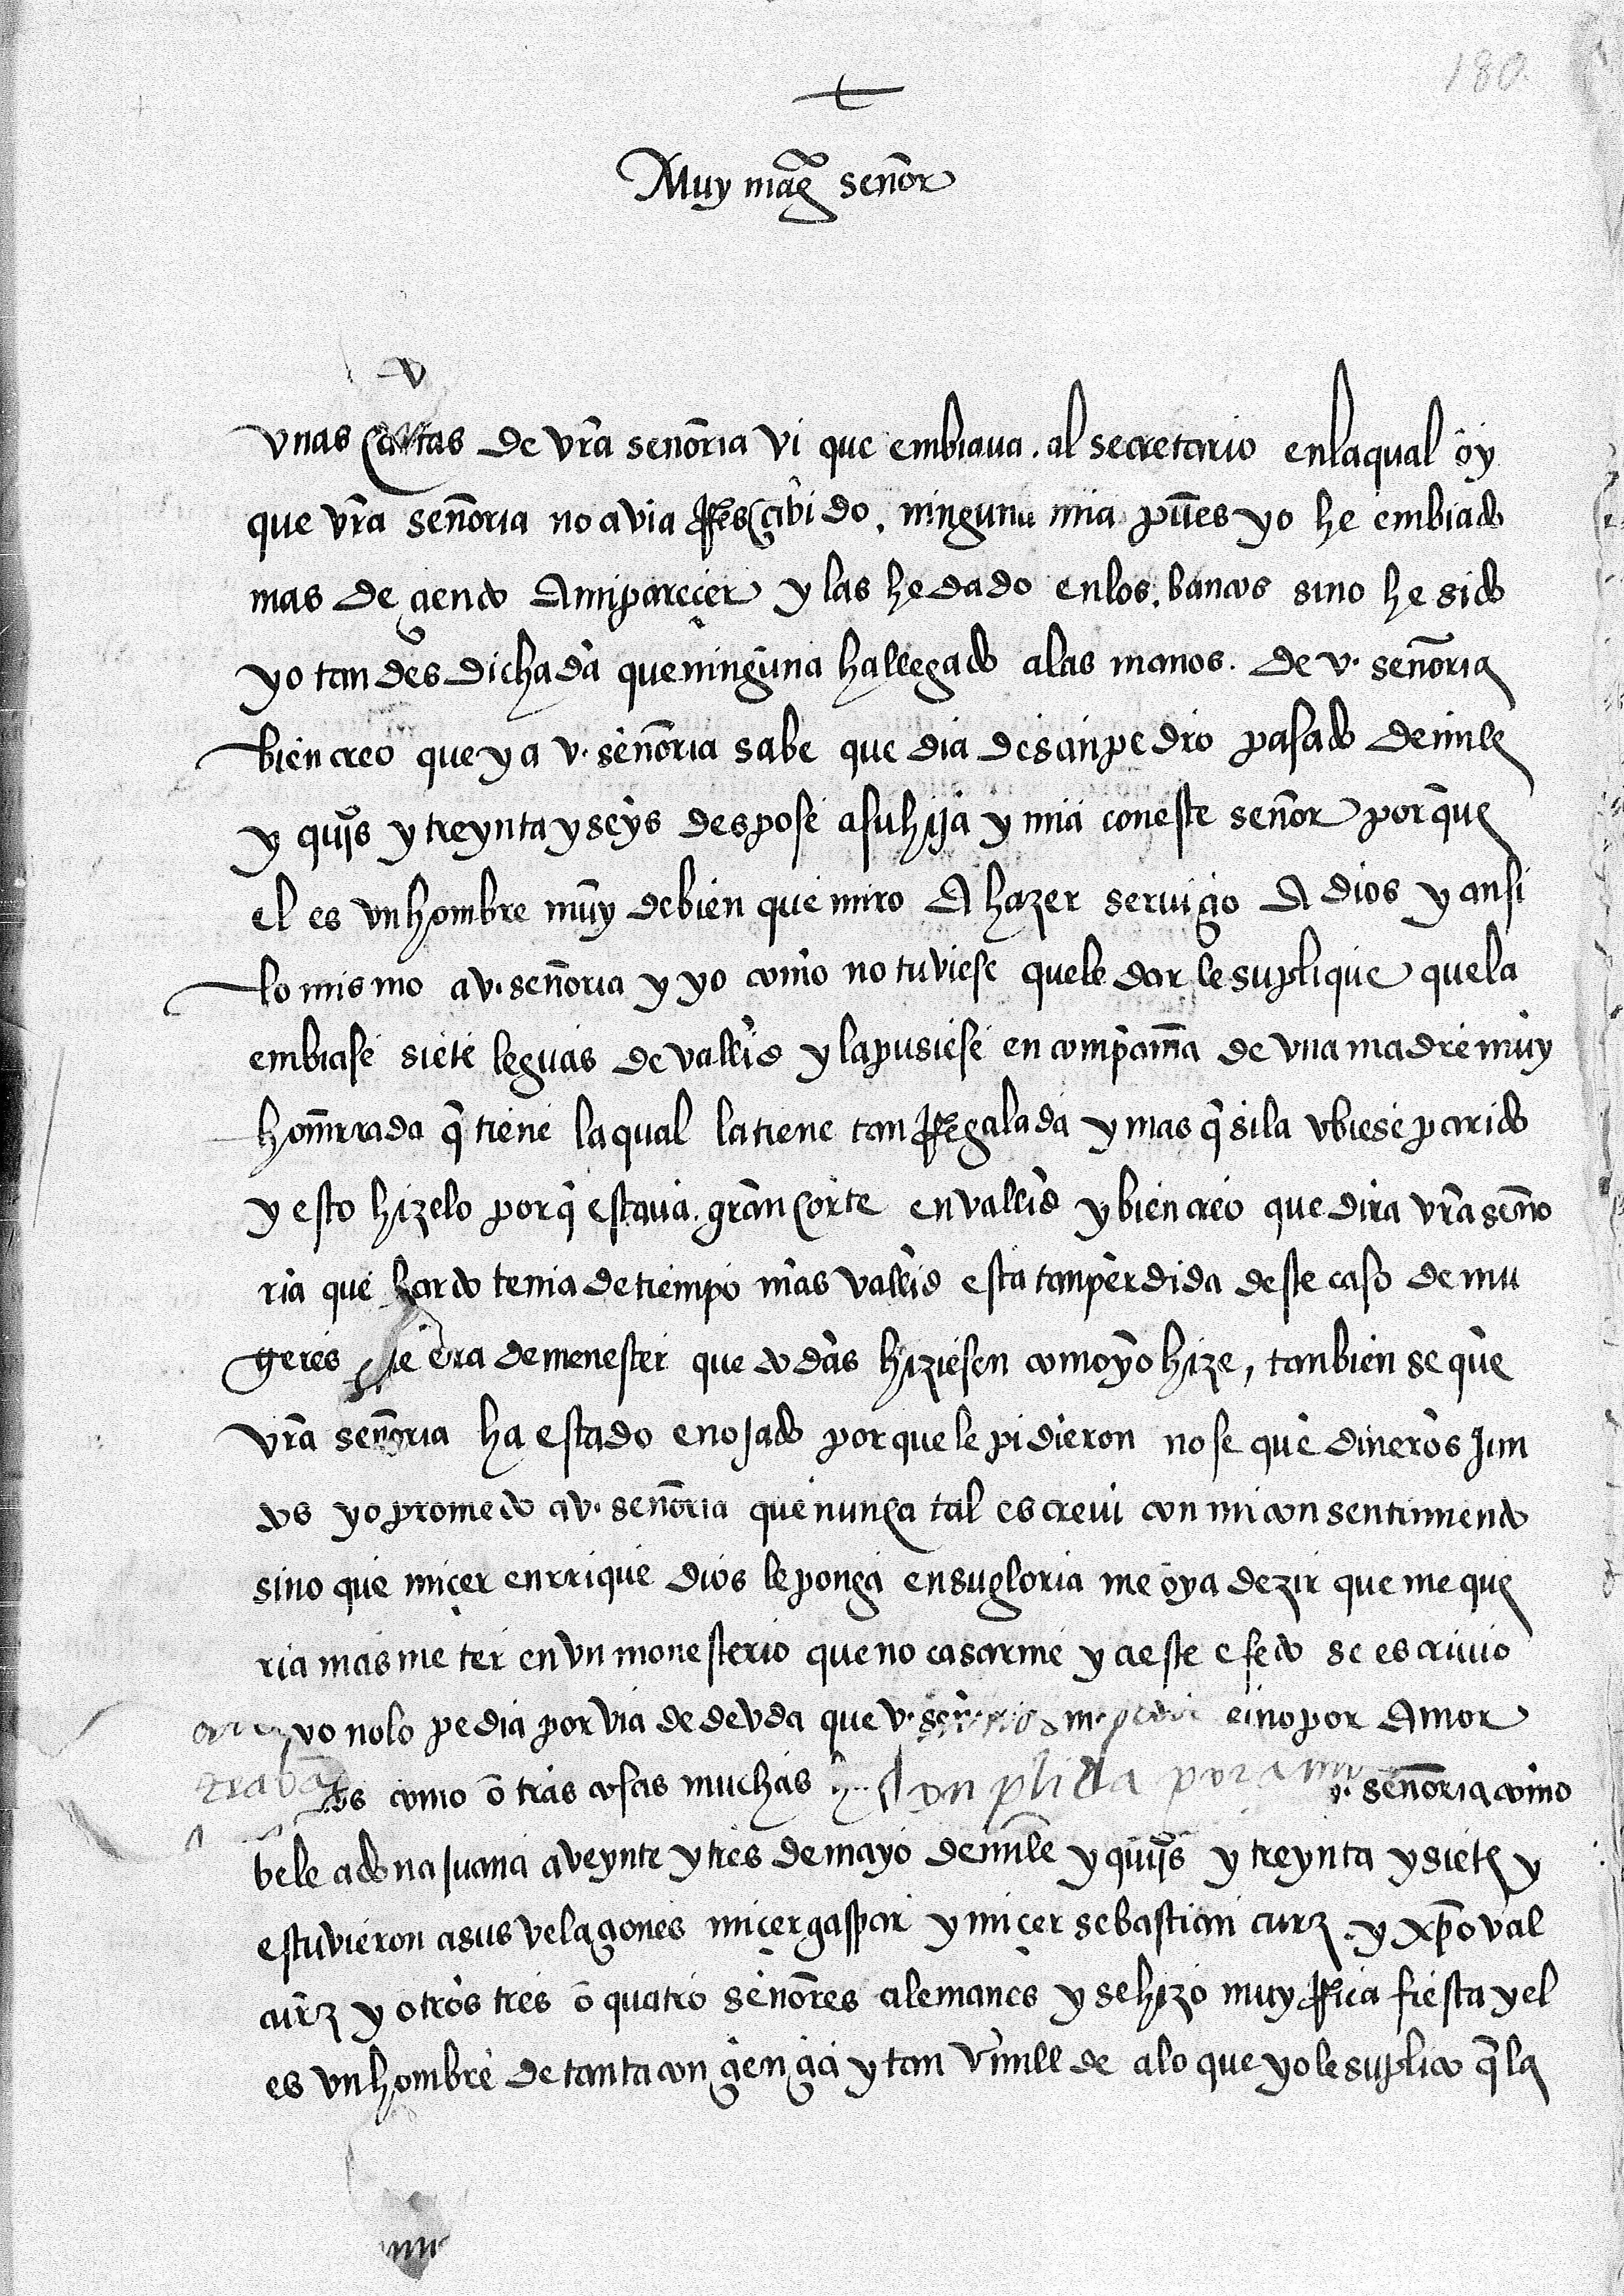 180
Muy mag^co señor
v
vnas cartas de vra señoria vi que embiava . al secretario enlaqual oy
que vra señoria no avia Resçibido . ninguna mia pues yo he embiado
mas de çiento A mi pareçer y las he dado enlos . bancos sino he sido
yo tan desdichada que ninguna ha llegado alas manos . de v. señoria
bien creo que ya v. señoria sabe que dia de sanpedro pasado de mill
y quis y treynta y seys despose a su hija y mia coneste señor porque
el es vn hombre muy de bien que miro A hazer serviçio A dios y ansi
lo mismo a v. señoria y yo como no tuviese quele dar le suplique quela
embiase siete leguas de vallid y la pusiese en compannia de vna madre muy
honrrada q tiene laqual la tiene tan Regalada y mas q sila vbiese parido
y esto hizelo porq estava . gran corte en vallid y bien creo que dira vra seño
ria que harto tenia de tiempo mas vallid esta tan perdida deste caso de mu
geres que era de menester que todas hiziesen como yo hize , tanbien se que
vra señoria ha estado enojado porque le pidieron no se que dineros jun
tos yo prometo a v. señoria que nunca tal escrevi con mi consentimiento
sino que miçer enrrique dios le ponga en su gloria me oya dezir que me que
ria mas meter en vn monesterio que no casarme y a este efecto se escrivio
yo nolo pedia por via de devda que v. señoria me sino por Amor
como otras cosas muchas conplida por v. señoria como
vele a doña juana a veynte y tres de mayo de mill y quis y treynta y siete y
estuvieron a sus velaçiones miçer gaspar y miçer sebastian curz . y xpoval
curz y otros tres o quatro señores alemanes y se hizo muy Rica fiesta y el
es vn hombre de tanta conçiençia y tan vmillde a lo que yo le suplico q la